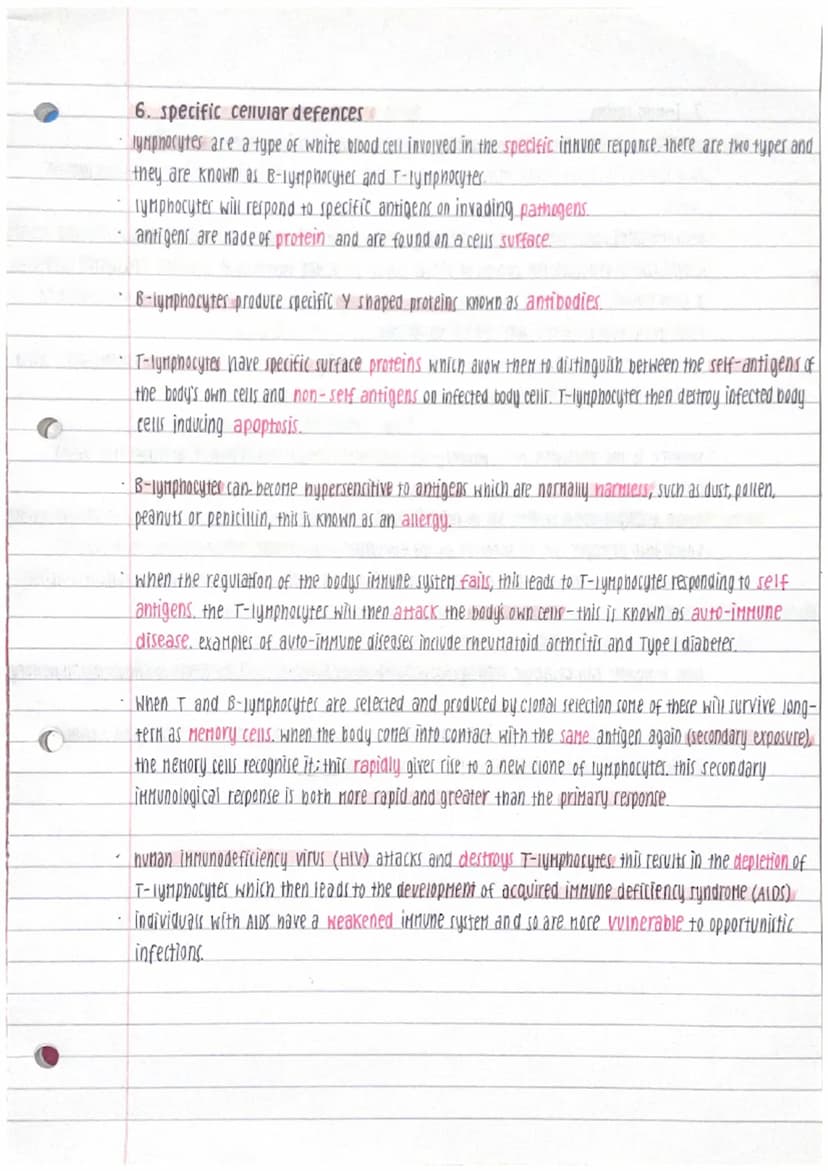 6. specific cellular defences
· lymphocytes are a type of white blood cell involved in the specific immune response. there are two types and
they are known as B-lymphocytes and T-lymphocytes.
· lymphocytes will respond to specific antigens on invading pathogens.
· antigens are made of protein and are found on a cells surface.
· B-lymphocytes produce specific Y shaped proteins known as antibodies.
· T-lymphocytes have specific surface proteins which allow them to distinguish between the self-antigens of
the body's own cells and non-self antigens on infected body cells. T-lymphocytes then destroy infected body
cells inducing apoptosis.
· B-lymphocytes can become hypersensitive to antigens which are normally harmless, such as dust, pollen,
peanuts or penicillin, this is known as an allergy.
· when the regulation of the bodys immune system fails, this leads to T-lymphocytes responding to self
antigens. the T-lymphocytes will then attack the body's own cells - this is known as auto-immune
disease. examples of auto-immune diseases include rheumatoid arthritis and Type 1 diabetes.
· When T and B-lymphocytes are selected and produced by clonal selection some of these will survive long-
term as memory cells. when the body comes into contact with the same antigen again (secondary exposure),
the memory cells recognise it; this rapidly gives rise to a new clone of lymphocytes. this secondary
immunological response is both more rapid and greater than the primary response.
· human immunodeficiency virus (HIV) attacks and destroys T-lymphocytes. this results in the depletion of
T-lymphocytes which then leads to the development of acquired immune deficiency syndrome (AIDS).
· individuals with AIDS have a weakened immune system and so are more vulnerable to opportunistic
infections.